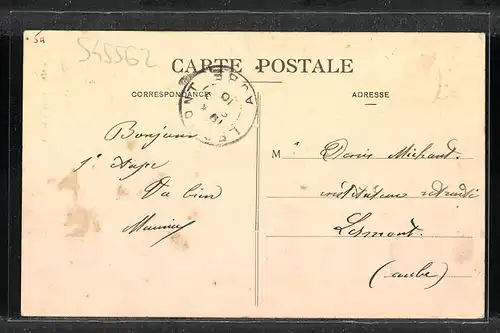 54
545562
CARTE POSTALE
CORRESPONDANCE
ADRESSE
LESMONT AUBE
Bonjour
1e étape
Va bien
Maurice
M Denis Michaut.
instituteur retraité
Lesmont.
(aube)